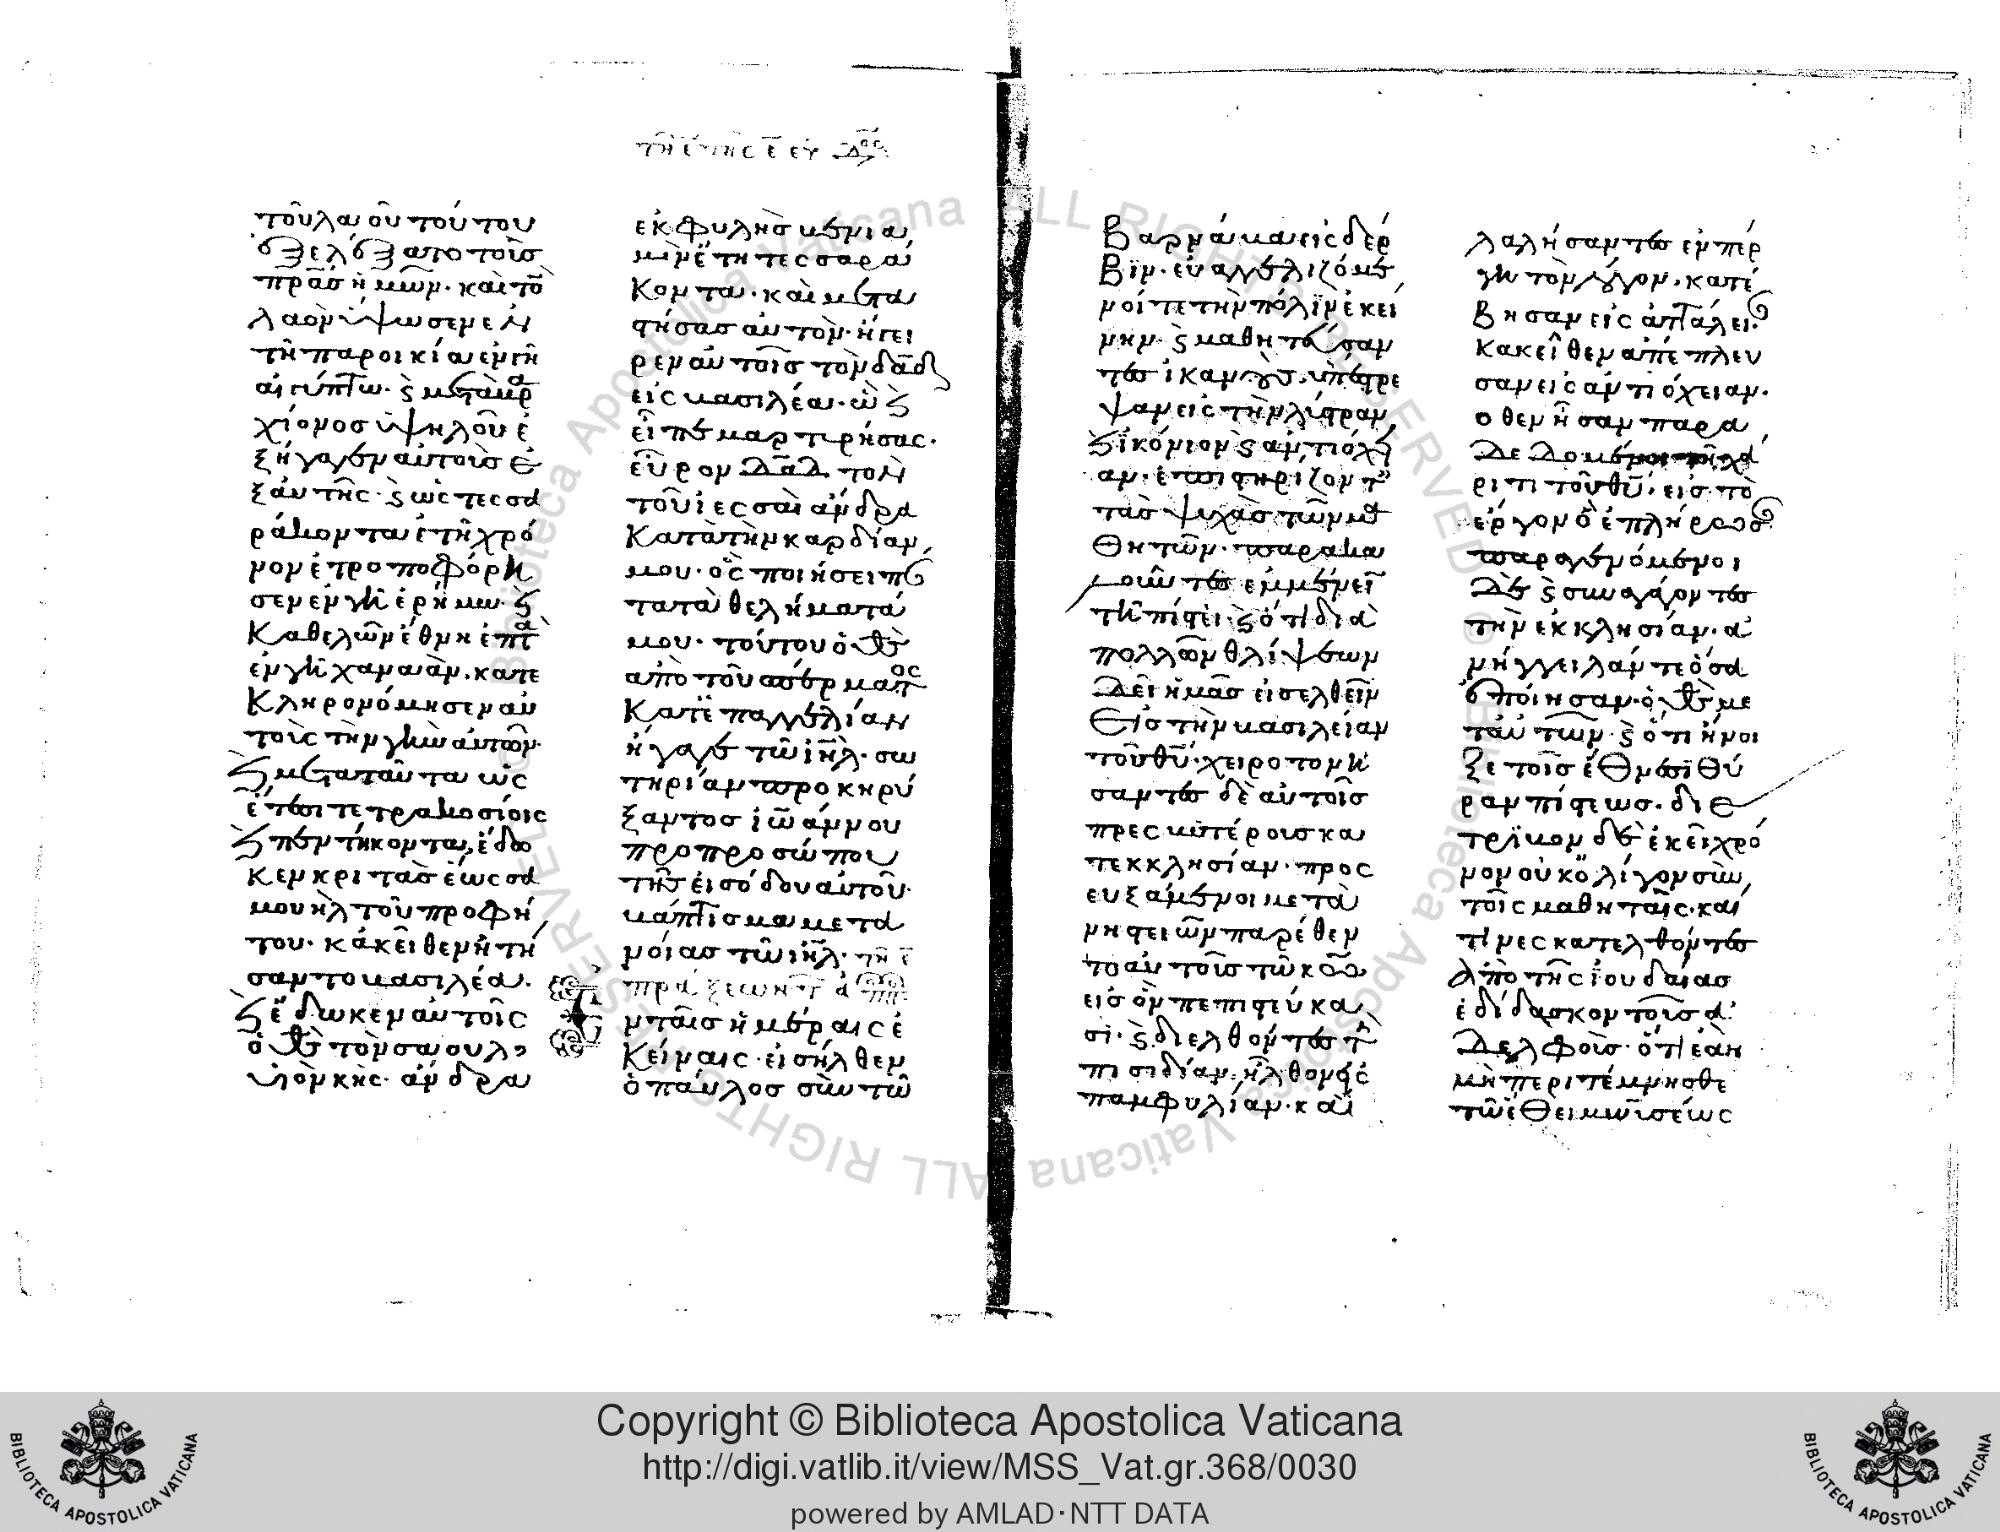 τοῦ λαοῦ τούτου
ἐξελέξατο τοὺς
πρας ἡμῶν· καὶ τὸ
λαὸν ὕψωσεν ἐν
τῆ παροικία ἐν γῆ
αἰγύπτω· καὶ μετὰ βρα
χίονος ὑψηλοῦ ἐ
ξήγαγεν αὐτοὺς ἐ
ξ αὐτῆς· καὶ ὡς τεσσα
ράκοντα ἐτῆ χρό
νον ἐτροποφόρη
σεν ἐν τῆ ἐρήμω· καὶ
καθελὼν ἔθνη ἑπτὰ
ἐν γῆ χαναὰν· κατε
κληρονόμησεν αὐ
τοῖς τὴν γῆν αὐτῶν·
καὶ μετὰ ταῦτα ὡς
ἔτεσι τετρακοσίοις
καὶ πεντήκοντα, ἔδω
κεν κριτὰς ἕως σα
μουὴλ τοῦ προφή
του· κἀκεῖθεν ἠτή
σαντο βασιλέα·
καὶ ἔδωκεν αὐτοῖς
ὁ θς τὸν σαοὺλ
υἱὸν κὶς· ἄνδρα
ἐκ φυλῆς βενια
μὶν ἔτη τεσσαρά
κοντα· καὶ μετα
στήσας αὐτὸν· ἤγει
ρεν αὐτοῖς τὸν δαδ
εἰς βασιλέα· ὧ καὶ
εἶπε μαρτυρήσας·
εὗρον δαδ τὸν
τοῦ ἰεσσαὶ ἄνδρα
κατὰ τὴν καρδίαν
μου· ὃς ποιήσει πά
τα τὰ θελήματά
μου· τούτου ὁ θς
ἀπὸ τοῦ σπέρματος
κατ' ἐπαγγελίαν
ἤγαγε τῶ ιηλ· σω
τηρίαν προκηρύ
ξαντος ἰωάννου
πρὸ προσώπου
τῆς εἰσόδου αὐτοῦ·
βάπτισμα μετα
νοίας τῶ ιηλ·
πράξεων τ ἀπ
Ἐν ταῖς ἡμέραις ἐ
κείναις· εἰσῆλθεν
ὁ παῦλος σὺν τῶ
βαρνάβα εἰς δέρ
βην· εὐαγγελιζόμε
νοί τε τὴν πόλιν ἐκεί
νην· καὶ μαθητεύσαν
τες ἱκανοὺς· ὑπέστρε
ψαν εἰς τὴν λύστραν
καὶ ἰκόνιον καὶ ἀντιόχει
αν· ἐπιστηρίζοντες
τὰς ψυχὰς τῶν μα
θητῶν· παρακα
λοῦντες ἐμμένειν
τῆ πίστει· καὶ ὅτι διὰ
πολλῶν θλίψεων
δεῖ ἡμᾶς εἰσελθεῖν
εἰς τὴν βασιλείαν
τοῦ θυ· χειροτονή
σαντες δὲ αὐτοῖς
πρεσβυτέρους κα
τ' ἐκκλησίαν· προς
ευξάμενοι μετὰ
νηστειῶν παρέθεν
το αὐτοὺς τῶ κω
εἰς ὃν πεπιστεύκα
σι· καὶ διελθόντες τὴν
πισιδίαν· ἦλθον εἰς
παμφυλίαν· καὶ
λαλήσαντες ἐν πέρ
γη τὸν λόγον· κατέ
βησαν εἰς ἀττάλειαν·
κἀκεῖθεν ἀπέπλευ
σαν εἰς ἀντιόχειαν·
ὅθεν ἦσαν παρα
δεδομένοι τῆ χά
ριτι τοῦ θυ· εἰς τὸ
ἔργον ὃ ἐπλήρωσαν
παραγενόμενοι
δὲ καὶ συναγαγόντες
τὴν ἐκκλησίαν· ἀ
νήγγειλάν τε ὅσα
ἐποίησαν ὁ θς με
τ' αὐτῶν· καὶ ὅτι ἤνοι
ξε τοῖς ἔθνεσι θύ
ραν πίστεως· διέ
τριβον δὲ ἐκεῖ χρό
νον οὐκ ὀλίγον σὺν
τοῖς μαθηταῖς· καί
τινες κατελθόντες
ἀπὸ τῆς ἰουδαίας
ἐδίδασκον τοὺς ἀ
δελφοὺς· ὅτι ἐὰν
μὴ περιτέμνησθε
τῶ ἔθει μωϋσέως
ALL RIGHTS RESERVED © Biblioteca Apostolica Vaticana
Copyright © Biblioteca Apostolica Vaticana
http://digi.vatlib.it/view/MSS_Vat.gr.368/0030
powered by AMLAD·NTT DATA
BIBLIOTECA APOSTOLICA VATICANA
BIBLIOTECA APOSTOLICA VATICANA